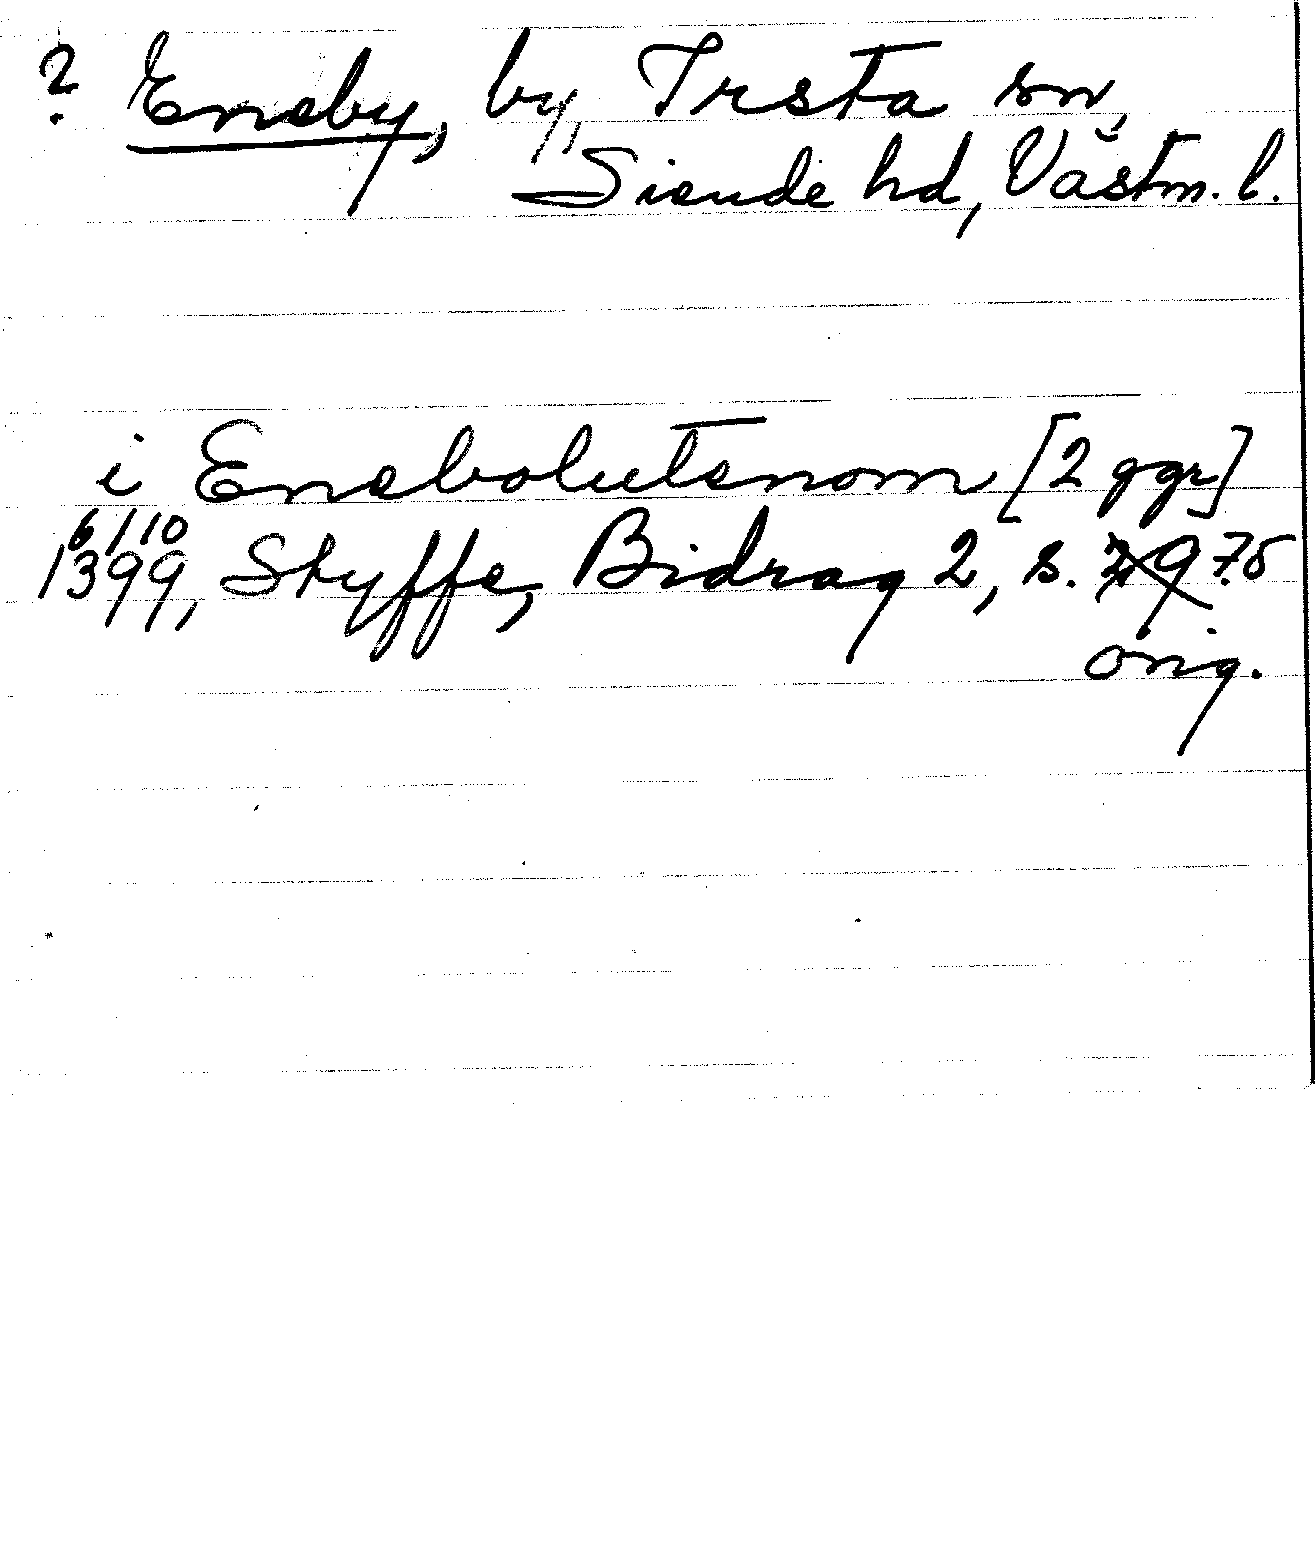 ? Eneby, by, Irsta sn,
Siende hd, Västm. l.
i Enebolutenom [2 ggr]
6/10
1399, Styffe, Bidrag 2, s. 75
orig.